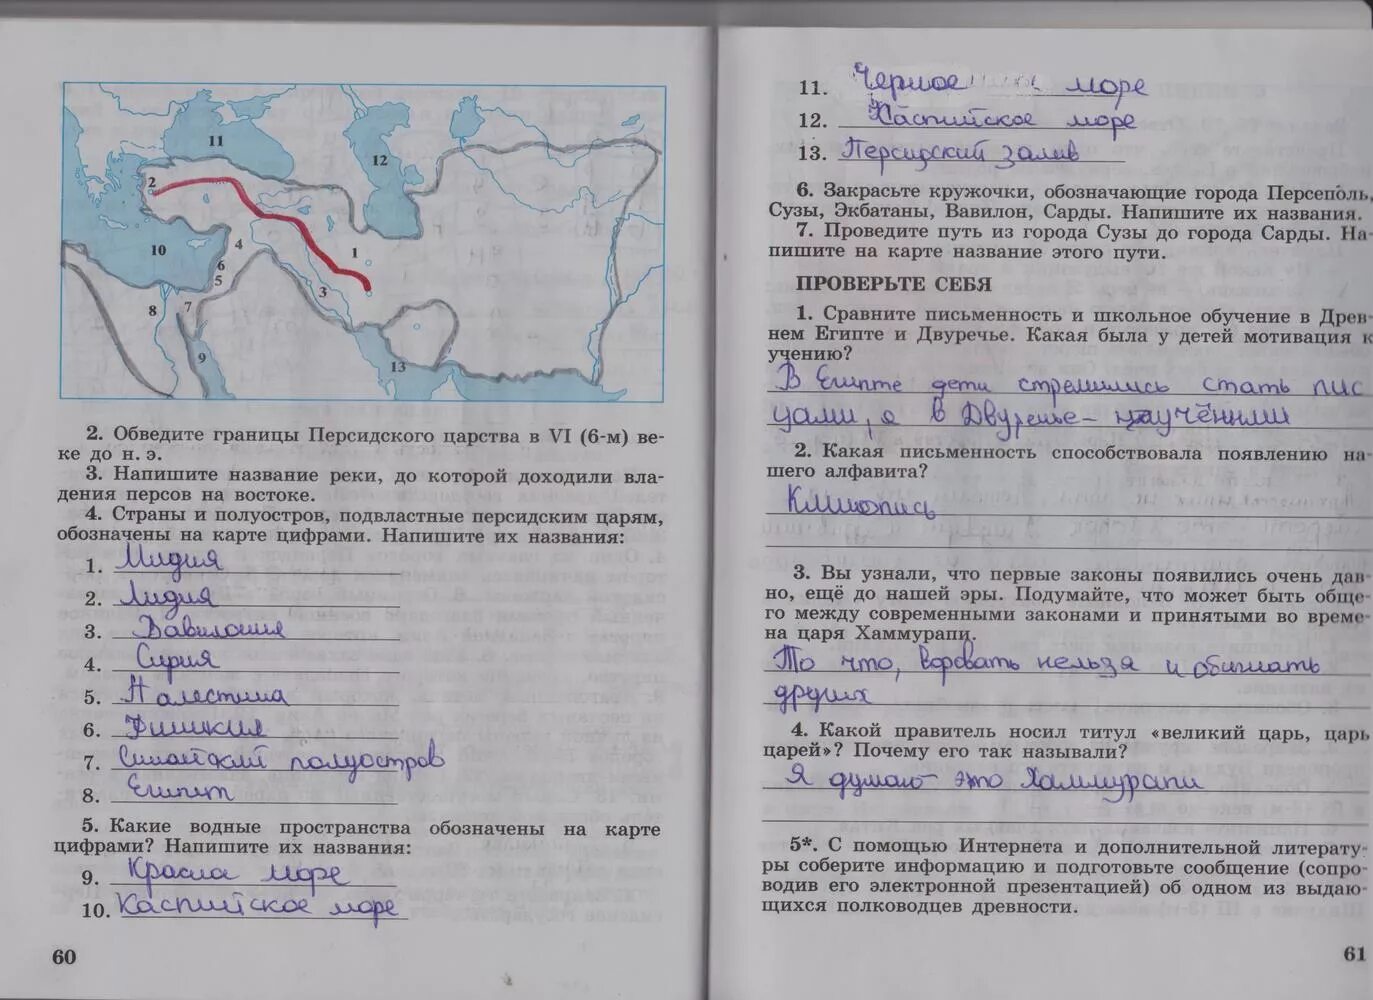 11
12
2
10
4
1
6
5
3
8
7
9
13
2. Обведите границы Персидского царства в VI (6-м) ве-
ке до н. э.
3. Напишите название реки, до которой доходили вла-
дения персов на востоке.
4. Страны и полуостров, подвластные персидским царям,
обозначены на карте цифрами. Напишите их названия:
1. Мидия
2. Лидия
3. Вавилония
4. Сирия
5. Палестина
6. Финикия
7. Синайский полуостров
8. Египет
5. Какие водные пространства обозначены на карте
цифрами? Напишите их названия:
9. Красна море
10. Каспийское море
60
11. Черное море
12. Каспийское море
13. Персидский залив
6. Закрасьте кружочки, обозначающие города Персеполь,
Сузы, Экбатаны, Вавилон, Сарды. Напишите их названия.
7. Проведите путь из города Сузы до города Сарды. На-
пишите на карте название этого пути.
ПРОВЕРЬТЕ СЕБЯ
1. Сравните письменность и школьное обучение в Древ-
нем Египте и Двуречье. Какая была у детей мотивация к
учению?
В Египте дети стремились стать пис
цами, а в Двуречье - научёнными
2. Какая письменность способствовала появлению на-
шего алфавита?
Клинопись
3. Вы узнали, что первые законы появились очень дав-
но, ещё до нашей эры. Подумайте, что может быть обще-
го между современными законами и принятыми во време-
на царя Хаммурапи.
То что, воровать нельзя и обижать
других
4. Какой правитель носил титул «великий царь, царь
царей»? Почему его так называли?
Я думаю это Хаммурапи
5*. С помощью Интернета и дополнительной литерату-
ры соберите информацию и подготовьте сообщение (сопро-
водив его электронной презентацией) об одном из выдаю-
щихся полководцев древности.
61